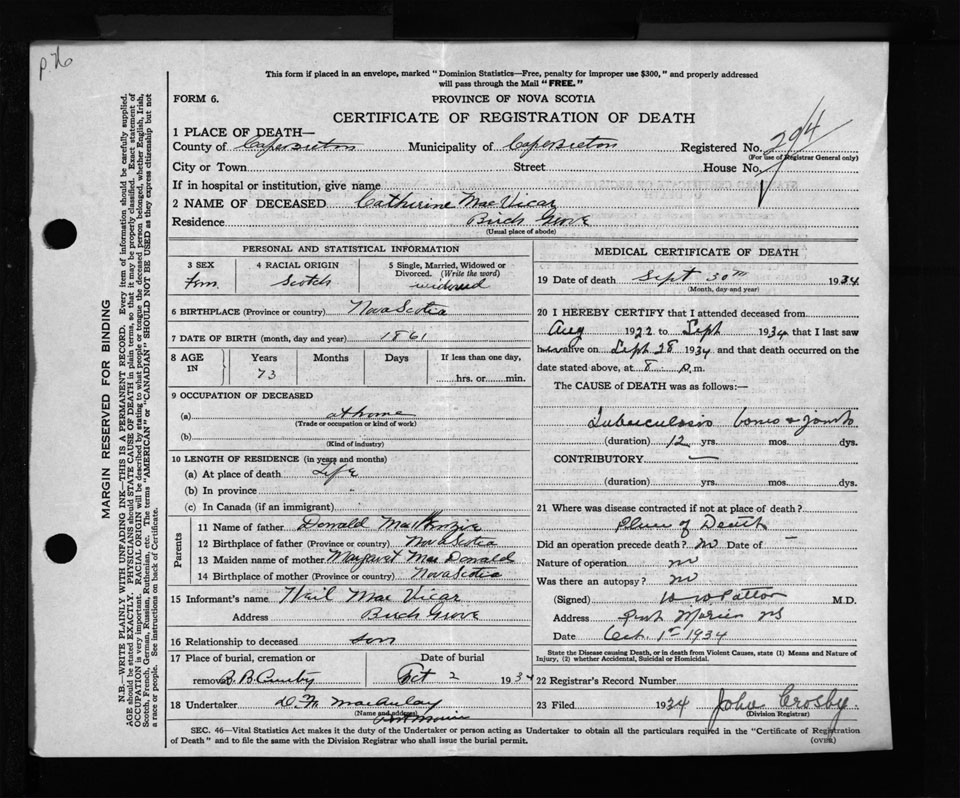 p. 76
This form if placed in an envelope, marked "Dominion Statistics—Free, penalty for improper use $300," and properly addressed
will pass through the Mail "FREE."
FORM 6.
PROVINCE OF NOVA SCOTIA
CERTIFICATE OF REGISTRATION OF DEATH
1 PLACE OF DEATH—
County of Cape Breton Municipality of Cape Breton Registered No. 294
(For use of Registrar General only)
City or Town Street House No.
If in hospital or institution, give name
2 NAME OF DECEASED Catherine MacVicar
Residence Birch Grove
(Usual place of abode)
PERSONAL AND STATISTICAL INFORMATION
3 SEX
Fem.
4 RACIAL ORIGIN
Scotch
5 Single, Married, Widowed or
Divorced. (Write the word)
widowed
6 BIRTHPLACE (Province or country) Nova Scotia
7 DATE OF BIRTH (month, day and year) 1861
8 AGE
IN
Years
73
Months
Days
If less than one day,
hrs. or min.
9 OCCUPATION OF DECEASED
(a) at home
(Trade or occupation or kind of work)
(b)
(Kind of industry)
10 LENGTH OF RESIDENCE (in years and months)
(a) At place of death Life
(b) In province "
(c) In Canada (if an immigrant)
Parents
11 Name of father Donald MacKenzie
12 Birthplace of father (Province or country) Nova Scotia
13 Maiden name of mother Margaret MacDonald
14 Birthplace of mother (Province or country) Nova Scotia
15 Informant's name Neil MacVicar
Address Birch Grove
16 Relationship to deceased son
17 Place of burial, cremation or
removal
Date of burial
Oct 2 1934
18 Undertaker MacAulay
(Name and address)
Port Morien
MEDICAL CERTIFICATE OF DEATH
19 Date of death Sept 30th 1934
(Month, day and year)
20 I HEREBY CERTIFY that I attended deceased from
Aug 1922 to Sept 1934 that I last saw
her alive on Sept 28 1934 and that death occurred on the
date stated above, at 8 p.m.
The CAUSE of DEATH was as follows:—
Tuberculosis bones & joints
(duration) 12 yrs. mos. dys.
CONTRIBUTORY —
(duration) yrs. mos. dys.
21 Where was disease contracted if not at place of death?
Place of Death
Did an operation precede death? no Date of —
Nature of operation no
Was there an autopsy? no
(Signed) Patton M.D.
Address Port Morien NS
Date Oct. 1st 1934
State the Disease causing Death, or in death from Violent Causes, state (1) Means and Nature of
Injury, (2) whether Accidental, Suicidal or Homicidal.
22 Registrar's Record Number
23 Filed 1934 John Crosby
(Division Registrar)
SEC. 46—Vital Statistics Act makes it the duty of the Undertaker or person acting as Undertaker to obtain all the particulars required in the "Certificate of Registration
of Death" and to file the same with the Division Registrar who shall issue the burial permit. (OVER)
MARGIN RESERVED FOR BINDING
N.B.—WRITE PLAINLY WITH UNFADING INK—THIS IS A PERMANENT RECORD. Every item of information should be carefully supplied.
AGE should be stated EXACTLY. PHYSICIANS should STATE CAUSE OF DEATH in plain terms, so that it may be properly classified. Exact statement of
OCCUPATION is very important. RACIAL ORIGIN will be described by stating to what people or tongue the deceased person belonged, whether English, Irish,
Scotch, French, German, Russian, Ruthenian, etc. The terms "AMERICAN" or "CANADIAN" SHOULD NOT BE USED as they express citizenship but not
a race or people. See instructions on back of Certificate.